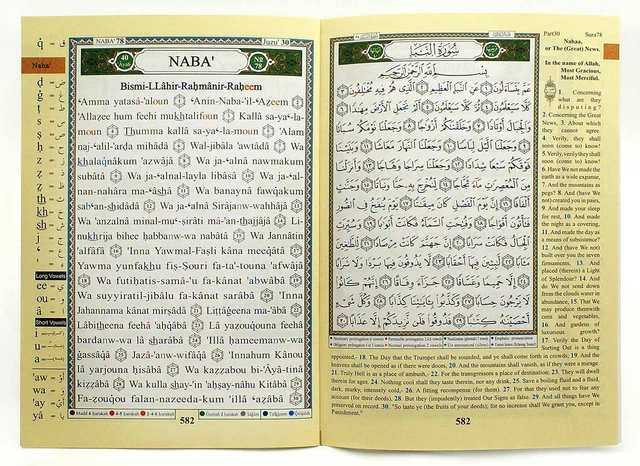 NABA' 78
Juzu' 30
40
NABA'
No 78
Bismi-LLâhir-Rahmânir-Raheem
'Amma yatasâ-'aloun 1 'Anin-Naba-'il-'Azeem 2
'Allazee hum feehi mukhtalifoun 3 Kallâ sa-ya'-la-
moun 4 Thumma kallâ sa-ya'-la-moun 5 'Alam
naj-'alil-'arda mihâdâ 6 Wal-jibâla 'awtâdâ 7 Wa
khalaqnâkum 'azwâjâ 8 Wa ja-'alnâ nawmakum
subâtâ 9 Wa ja-'alnal-layla libâsâ 10 Wa ja-'al-
nan-nahâra ma-'âshâ 11 Wa banaynâ fawqakum
sab-'an-shidâdâ 12 Wa ja-'alnâ Sirâjanw-wahhâjâ 13
Wa 'anzalnâ minal-mu'-sirâti mâ-'an-thajjâjâ 14 Li-
nukhrija bihee habbanw-wa nabâtâ 15 Wa Jannâtin
'alfâfâ 16 'Inna Yawmal-Fasli kâna meeqâtâ 17
Yawma yunfakhu fis-Souri fa-ta'-touna 'afwâjâ 18
Wa futihatis-samâ-'u fa-kânat 'abwâbâ 19
Wa suyyiratil-jibâlu fa-kânat sarâbâ 20 'Inna
Jahannama kânat mirsâdâ 21 Littâgeena ma-'âbâ 22
Lâbitheena feehâ 'ahqâbâ 23 Lâ yazouqouna feehâ
bardanw-wa lâ sharâbâ 24 'Illâ hameemanw-wa
gassâqâ 25 Jazâ-'anw-wifâqâ 26 'Innahum Kânou
lâ yarjouna hisâbâ 27 Wa kazzabou bi-'Âyâ-tinâ
kizzâbâ 28 Wa kulla shay-'in 'ahsay-nâhu Kitâbâ 29
Fa-zouqou falan-nazeedakum 'illâ 'azâbâ 30
582
Naba'
Long Vowels
ee
ou
â
Short Vowels
i
u
a
'aw
wa
'ay
yâ
Part30
Sura78
Nabaa,
or The (Great) News.
In the name of Allah,
Most Gracious,
Most Merciful.
سورة النبإ
بسم الله الرحمن الرحيم
عم يتساءلون ١ عن النبإ العظيم ٢ الذي هم فيه مختلفون ٣
كلا سيعلمون ٤ ثم كلا سيعلمون ٥ ألم نجعل الأرض مهادا ٦
والجبال أوتادا ٧ وخلقناكم أزواجا ٨ وجعلنا نومكم سباتا ٩
وجعلنا الليل لباسا ١٠ وجعلنا النهار معاشا ١١ وبنينا
فوقكم سبعا شدادا ١٢ وجعلنا سراجا وهاجا ١٣ وأنزلنا
من المعصرات ماء ثجاجا ١٤ لنخرج به حبا ونباتا ١٥ وجنات
ألفافا ١٦ إن يوم الفصل كان ميقاتا ١٧ يوم ينفخ في الصور
فتأتون أفواجا ١٨ وفتحت السماء فكانت أبوابا ١٩ وسيرت
الجبال فكانت سرابا ٢٠ إن جهنم كانت مرصادا ٢١ للطاغين
مآبا ٢٢ لابثين فيها أحقابا ٢٣ لا يذوقون فيها بردا ولا شرابا
٢٤ إلا حميما وغساقا ٢٥ جزاء وفاقا ٢٦ إنهم كانوا
لا يرجون حسابا ٢٧ وكذبوا بآياتنا كذابا ٢٨ وكل شيء
أحصيناه كتابا ٢٩ فذوقوا فلن نزيدكم إلا عذابا ٣٠
1. Concerning
what are they
disputing?
2. Concerning the Great
News, 3. About which
they cannot agree.
4. Verily, they shall
soon (come to) know!
5. Verily, verily they shall
soon (come to) know!
6. Have We not made the
earth as a wide expanse,
7. And the mountains as
pegs? 8. And (have We
not) created you in pairs,
9. And made your sleep
for rest, 10. And made
the night as a covering,
11. And made the day as
a means of subsistence?
12. And (have We not)
built over you the seven
firmaments, 13. And
placed (therein) a Light
of Splendour? 14. And
do We not send down
from the clouds water in
abundance, 15. That We
may produce therewith
corn and vegetables,
16. And gardens of
luxurious growth?
17. Verily the Day of
Sorting Out is a thing
appointed,- 18. The Day that the Trumpet shall be sounded, and ye shall come forth in crowds; 19. And the
heavens shall be opened as if there were doors, 20. And the mountains shall vanish, as if they were a mirage.
21. Truly Hell is as a place of ambush,- 22. For the transgressors a place of destination: 23. They will dwell
therein for ages. 24. Nothing cool shall they taste therein, nor any drink, 25. Save a boiling fluid and a fluid,
dark, murky, intensely cold,- 26. A fitting recompense (for them). 27. For that they used not to fear any
account (for their deeds), 28. But they (impudently) treated Our Signs as false. 29. And all things have We
preserved on record. 30. "So taste ye (the fruits of your deeds); for no increase shall We grant you, except in
Punishment."
582